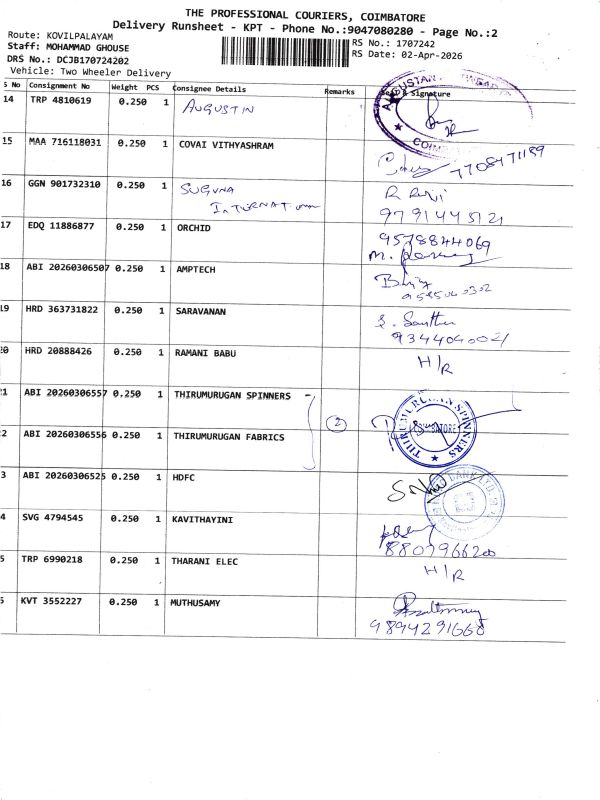 THE PROFESSIONAL COURIERS, COIMBATORE
Delivery Runsheet - KPT - Phone No.:9047080280 - Page No.:2
Route: KOVILPALAYAM
RS No.: 1707242
Staff: MOHAMMAD GHOUSE
RS Date: 02-Apr-2026
DRS No.: DCJB170724202
Vehicle: Two Wheeler Delivery
S No Consignment No Weight PCS Consignee Details Remarks Signature
14 TRP 4810619 0.250 1 AUGUSTIN
15 MAA 716118031 0.250 1 COVAI VITHYASHRAM
16 GGN 901732310 0.250 1 SUGUNA
INTERNATIONAL
9791445121
17 EDQ 11886877 0.250 1 ORCHID
9578844069
18 ABI 20260306507 0.250 1 AMPTECH
19 HRD 363731822 0.250 1 SARAVANAN
20 HRD 20888426 0.250 1 RAMANI BABU H/R
21 ABI 20260306557 0.250 1 THIRUMURUGAN SPINNERS
2 THIRUMURUGAN SPINNERS COIMBATORE
22 ABI 20260306556 0.250 1 THIRUMURUGAN FABRICS
3 ABI 20260306525 0.250 1 HDFC BANK LTD
4 SVG 4794545 0.250 1 KAVITHAYINI
8807966200
5 TRP 6990218 0.250 1 THARANI ELEC H/R
KVT 3552227 0.250 1 MUTHUSAMY
9894291668